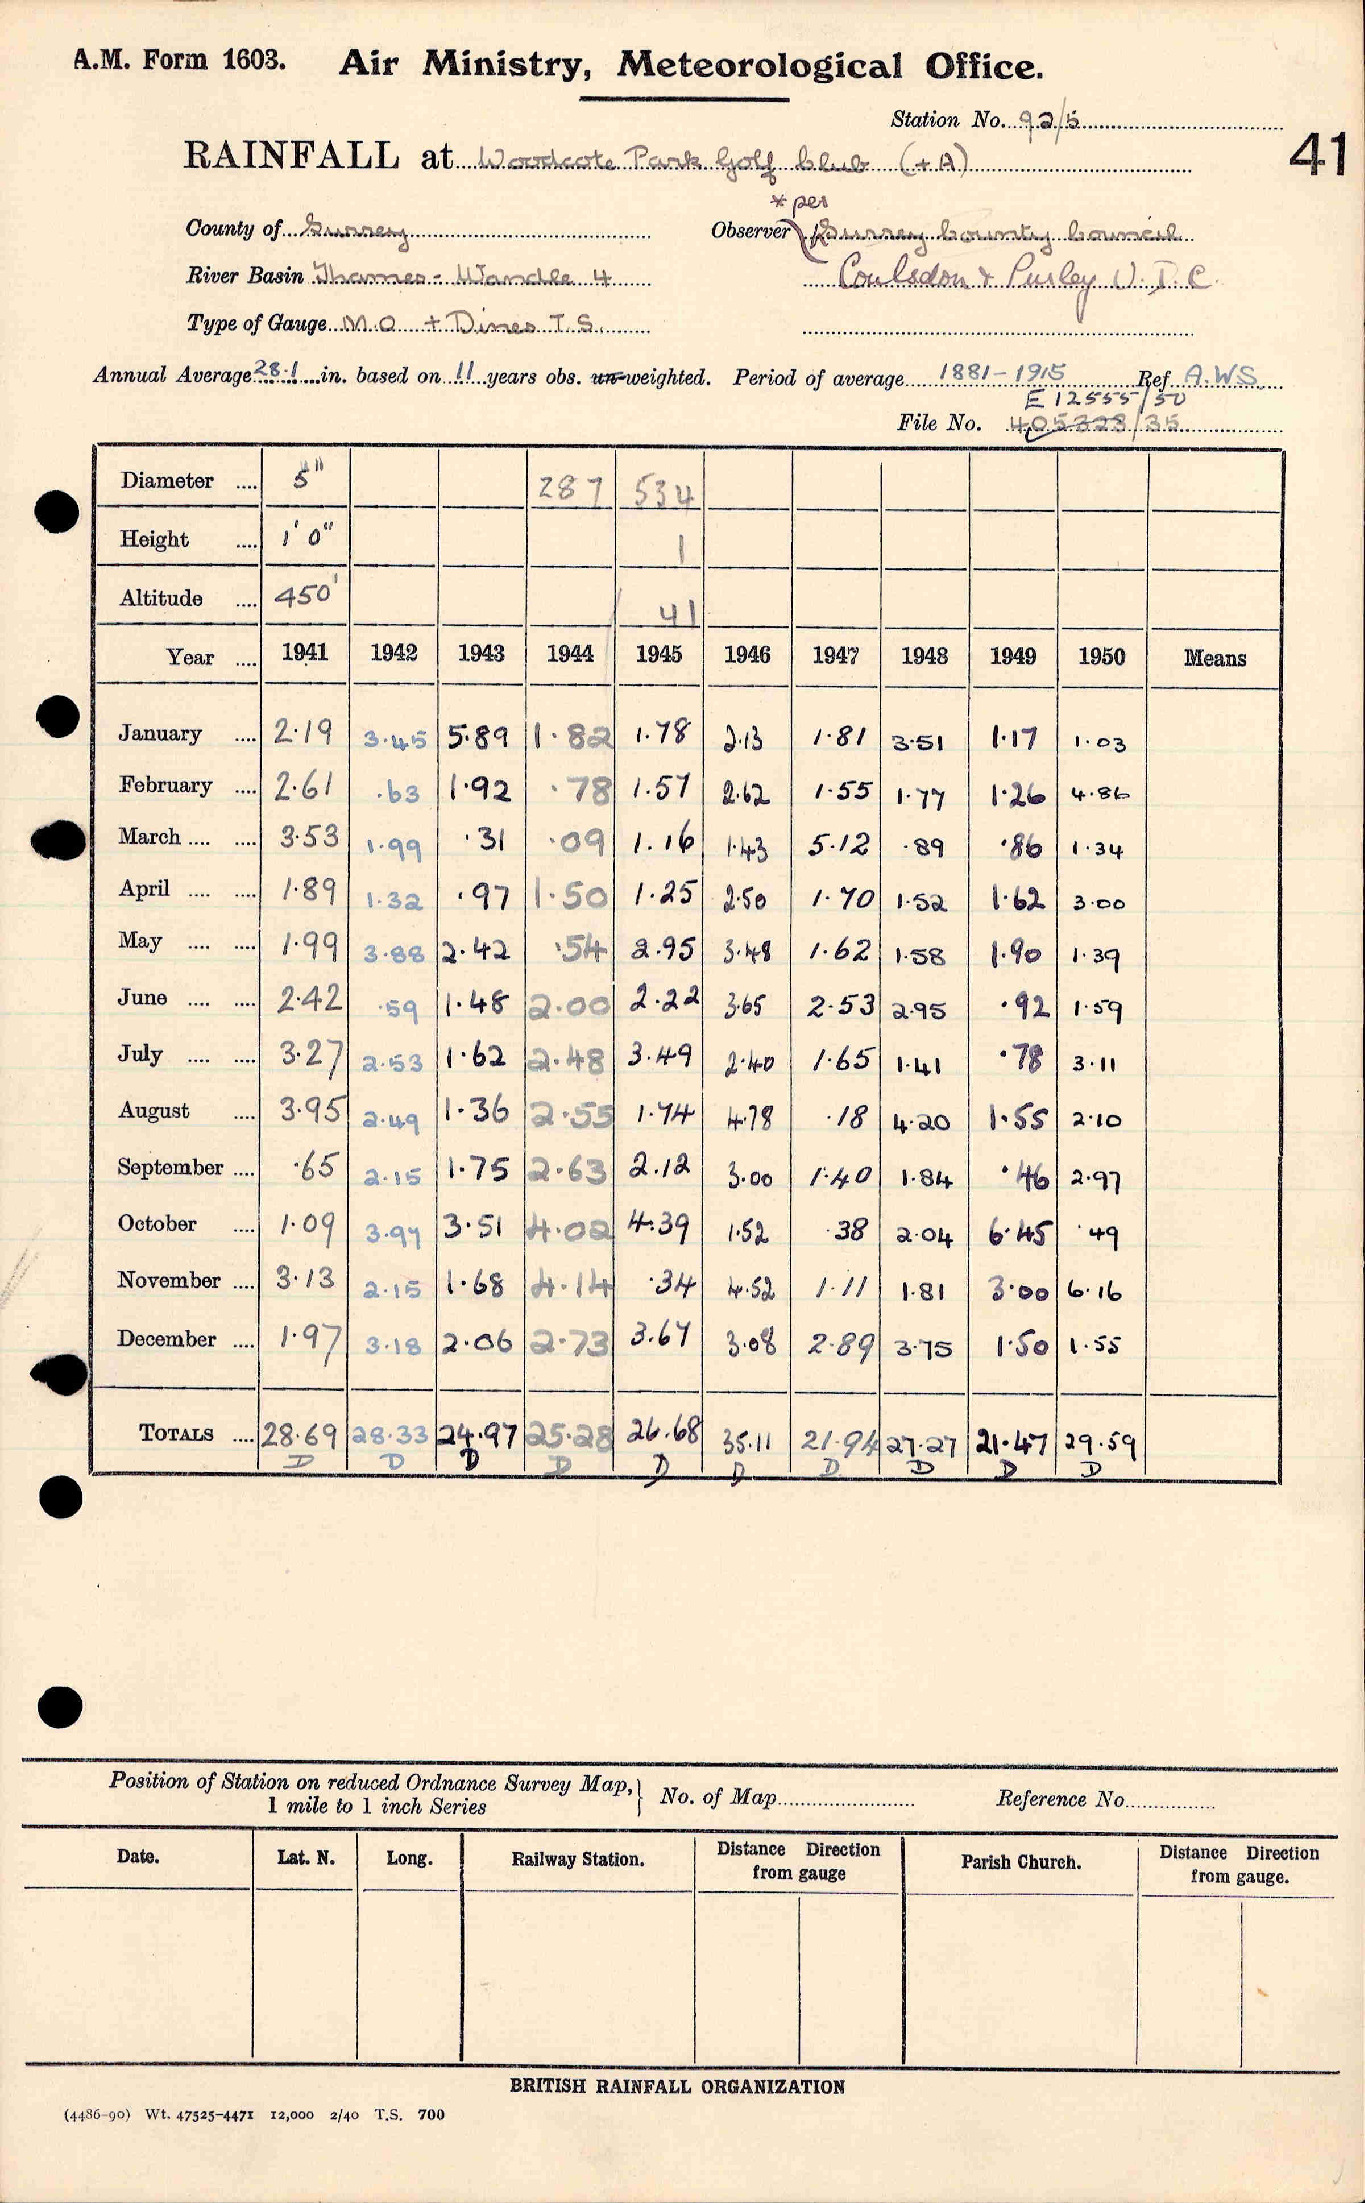 A.M. Form 1603. Air Ministry, Meteorological Office.
Station No. 92/5
41
RAINFALL at Woodcote Park Golf Club (+A)
* per
County of Surrey Observer Surrey County Council
River Basin Thames - Wandle 4 Coulsdon & Purley U.D.C.
Type of Gauge M.O + Dines T.S.
Annual Average 28.1 in. based on 11 years obs. un-weighted. Period of average 1881-1915 Ref A.W.S.
E 12555/50
File No. 405328/35
Diameter .... 5" 287 534
Height .... 1' 0" 1
Altitude .... 450' 41
Year .... 1941 1942 1943 1944 1945 1946 1947 1948 1949 1950 Means
January .... 2.19 3.45 5.89 1.82 1.78 2.13 1.81 3.51 1.17 1.03
February .... 2.61 .63 1.92 .78 1.57 2.62 1.55 1.77 1.26 4.86
March .... .... 3.53 1.99 .31 .09 1.16 1.43 5.12 .89 .86 1.34
April .... .... 1.89 1.32 .97 1.50 1.25 2.50 1.70 1.52 1.62 3.00
May .... .... 1.99 3.88 2.42 .54 2.95 3.48 1.62 1.58 1.90 1.39
June .... .... 2.42 .59 1.48 2.00 2.22 3.65 2.53 2.95 .92 1.59
July .... .... 3.27 2.53 1.62 2.48 3.49 2.40 1.65 1.41 .78 3.11
August .... 3.95 2.49 1.36 2.55 1.74 4.78 .18 4.20 1.55 2.10
September .... .65 2.15 1.75 2.63 2.12 3.00 1.40 1.84 .46 2.97
October .... 1.09 3.97 3.51 4.02 4.39 1.52 .38 2.04 6.45 .49
November .... 3.13 2.15 1.68 4.14 .34 4.52 1.11 1.81 3.00 6.16
December .... 1.97 3.18 2.06 2.73 3.67 3.08 2.89 3.75 1.50 1.55
TOTALS .... 28.69 28.33 24.97 25.28 26.68 35.11 21.94 27.27 21.47 29.59
D D D D D D D D D D
Position of Station on reduced Ordnance Survey Map,
1 mile to 1 inch Series
No. of Map Reference No.
Date. Lat. N. Long. Railway Station. Distance from gauge Direction Parish Church. Distance Direction from gauge.
BRITISH RAINFALL ORGANIZATION
(4486-90) Wt. 47525-4471 12,000 2/40 T.S. 700